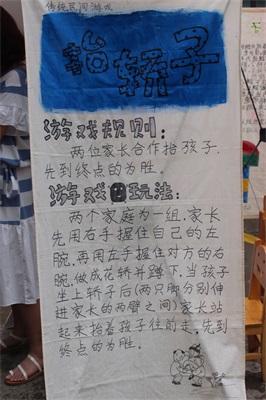 传统民间游戏
抬轿子
游戏规则：
两位家长合作抬孩子，
先到终点的为胜。
游戏的玩法：
两个家庭为一组，家长
先用右手握住自己的左
腕，再用左手握住对方的右
腕，做成花轿并蹲下，当孩子
坐上轿子后（两只脚分别伸
进家长的两臂之间）家长站
起来抬着孩子往前走，先到
终点的为胜。